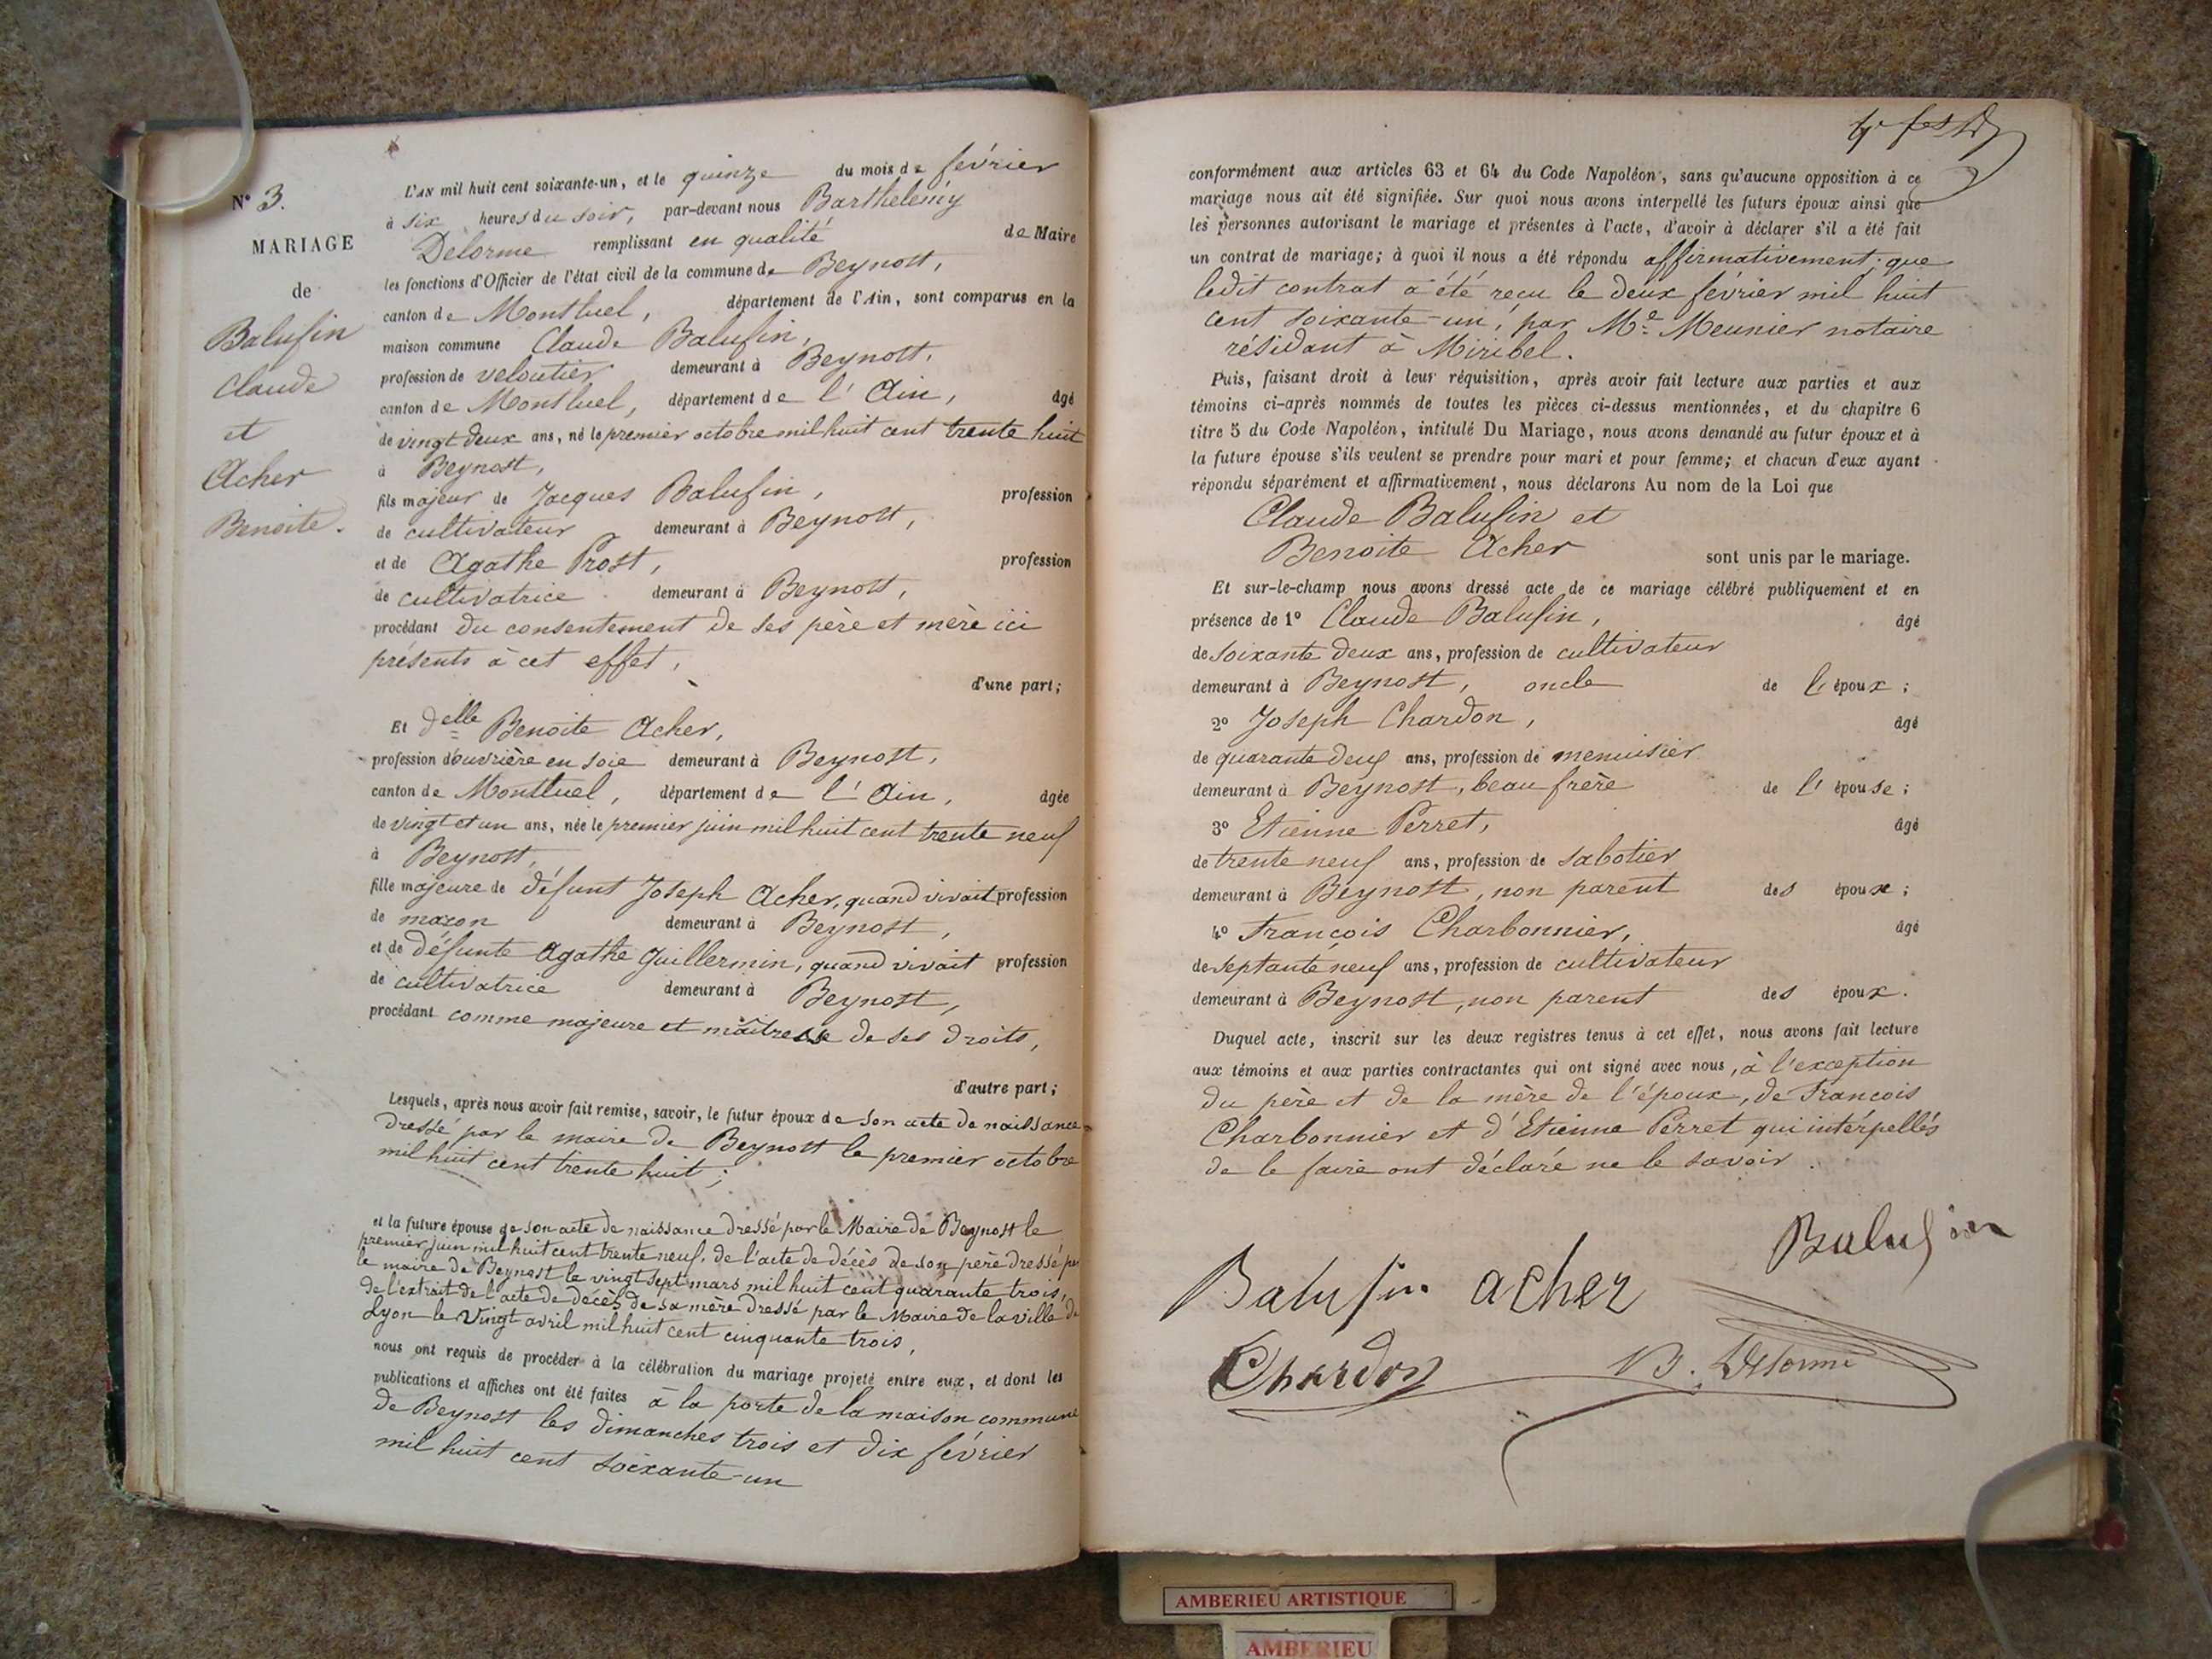 N° 3.
MARIAGE
de
Balufin
Claude
et
Acher
Benoite.
L'AN mil huit cent soixante-un, et le quinze du mois de février
à six heures du soir, par-devant nous Barthelémy
Delorme remplissant en qualité de Maire
les fonctions d'Officier de l'état civil de la commune de Beynost,
canton de Montluel, département de l'Ain, sont comparus en la
maison commune Claude Balufin,
profession de veloutier demeurant à Beynost,
canton de Montluel, département de l'Ain, âgé
de vingt deux ans, né le premier octobre mil huit cent trente huit
à Beynost,
fils majeur de Jacques Balufin, profession
de cultivateur demeurant à Beynost,
et de Agathe Prost, profession
de cultivatrice demeurant à Beynost,
procédant du consentement de ses père et mère ici
présents à cet effet,
d'une part;
Et delle Benoite Acher,
profession d'ouvrière en soie demeurant à Beynost,
canton de Montluel, département de l'Ain, âgée
de vingt et un ans, née le premier juin mil huit cent trente neuf
à Beynost,
fille majeure de défunt Joseph Acher, quand vivait profession
de maçon demeurant à Beynost,
et de défunte Agathe Guillermin, quand vivait profession
de cultivatrice demeurant à Beynost,
procédant comme majeure et maîtresse de ses droits,
d'autre part;
Lesquels, après nous avoir fait remise, savoir, le futur époux de son acte de naissance
dressé par le maire de Beynost le premier octobre
mil huit cent trente huit;
et la future épouse de son acte de naissance dressé par le Maire de Beynost le
premier juin mil huit cent trente neuf, de l'acte de décès de son père dressé par
le maire de Beynost le vingt sept mars mil huit cent quarante trois,
de l'extrait de l'acte de décès de sa mère dressé par le Maire de la ville de
Lyon le Vingt avril mil huit cent cinquante trois,
nous ont requis de procéder à la célébration du mariage projeté entre eux, et dont les
publications et affiches ont été faites à la porte de la maison commune
de Beynost les dimanches trois et dix février
mil huit cent soixante-un
conformément aux articles 63 et 64 du Code Napoléon, sans qu'aucune opposition à ce
mariage nous ait été signifiée. Sur quoi nous avons interpellé les futurs époux ainsi que
les personnes autorisant le mariage et présentes à l'acte, d'avoir à déclarer s'il a été fait
un contrat de mariage; à quoi il nous a été répondu affirmativement; que
ledit contrat a été reçu le deux février mil huit
cent soixante-un, par Me Meunier notaire
résidant à Miribel.
Puis, faisant droit à leur réquisition, après avoir fait lecture aux parties et aux
témoins ci-après nommés de toutes les pièces ci-dessus mentionnées, et du chapitre 6
titre 5 du Code Napoléon, intitulé Du Mariage, nous avons demandé au futur époux et à
la future épouse s'ils veulent se prendre pour mari et pour femme; et chacun d'eux ayant
répondu séparément et affirmativement, nous déclarons Au nom de la Loi que
Claude Balufin et
Benoite Acher sont unis par le mariage.
Et sur-le-champ nous avons dressé acte de ce mariage célébré publiquement et en
présence de 1° Claude Balufin, âgé
de soixante deux ans, profession de cultivateur
demeurant à Beynost, oncle de l'époux;
2° Joseph Chardon, âgé
de quarante deux ans, profession de menuisier
demeurant à Beynost, beau frère de l'épouse;
3° Etienne Perret, âgé
de trente neuf ans, profession de sabotier
demeurant à Beynost, non parent des époux;
4° François Charbonnier, âgé
de septante neuf ans, profession de cultivateur
demeurant à Beynost, non parent des époux.
Duquel acte, inscrit sur les deux registres tenus à cet effet, nous avons fait lecture
aux témoins et aux parties contractantes qui ont signé avec nous, à l'exception
du père et de la mère de l'époux, de François
Charbonnier et d'Etienne Perret qui intérpellés
de le faire ont déclaré ne le savoir.
Balufin
Balufin acher
Chardon B. Delorme
AMBERIEU ARTISTIQUE
AMBERIEU